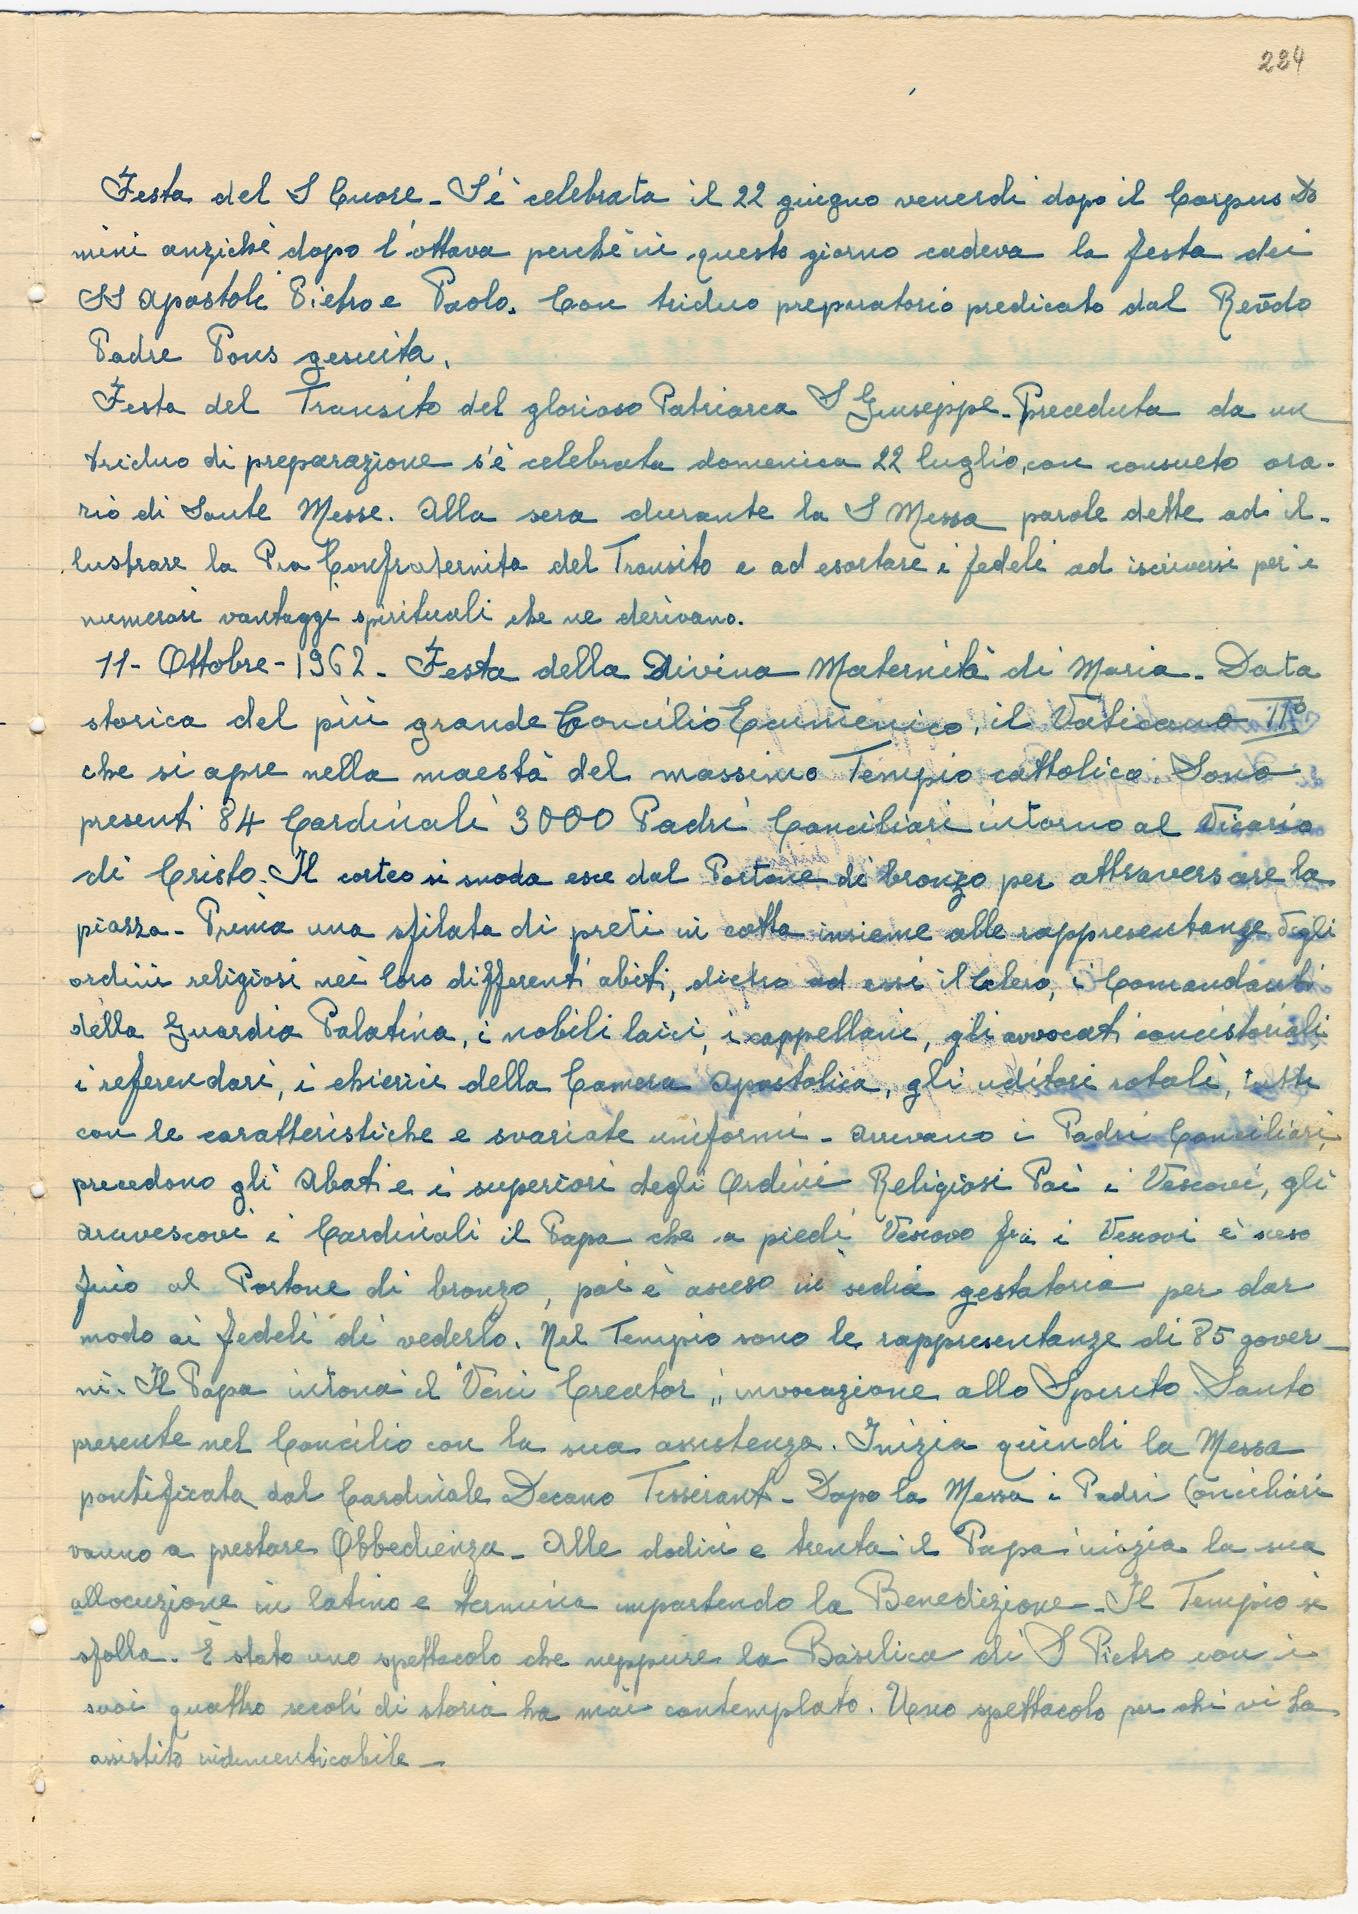 224
Festa del S Cuore - S'è celebrata il 22 giugno venerdi dopo il Corpus Do
mini anzichè dopo l'ottava perchè in questo giorno cadeva la festa dei
SS Apostoli Pietro e Paolo. Con triduo preparatorio predicato dal Revdo
Padre Pons gesuita.
Festa del Transito del glorioso Patriarca S Giuseppe - Preceduta da un
triduo di preparazione s'è celebrata domenica 22 luglio, con consueto ora-
rio di Sante Messe. Alla sera durante la S Messa parole dette ad il-
lustrare la Pia Confraternita del Transito e ad esortare i fedeli ad iscriversi per i
numerosi vantaggi spirituali che ne derivano.
11 - Ottobre - 1962 - Festa della Divina Maternità di Maria - Data
storica del più grande Concilio Ecumenico, il Vaticano II°
che si apre nella maestà del massimo Tempio cattolico. Sono
presenti 84 Cardinali 3000 Padri Conciliari intorno al Vicario
di Cristo. Il corteo si snoda esce dal Portone di bronzo per attraversare la
piazza - Prima una sfilata di preti in cotta insieme alle rappresentanze degli
ordini religiosi nei loro differenti abiti, dietro ad essi il Clero, i Comandanti
della Guardia Palatina, i nobili laici, i cappellani, gli avvocati concistoriali,
i referendari, i chierici della Camera Apostolica, gli uditori rotali, tutti
con le caratteristiche e svariate uniformi - Arrivano i Padri Conciliari,
precedono gli Abati e i superiori degli Ordini Religiosi Poi i Vescovi, gli
Arcivescovi i Cardinali il Papa che a piedi Vescovo fra i Vescovi è sceso
fino al Portone di bronzo, poi è asceso in sedia gestatoria per dar
modo ai fedeli di vederlo. Nel Tempio sono le rappresentanze di 85 gover-
ni. Il Papa intona il "Veni Creator,, invocazione allo Spirito Santo
presente nel Concilio con la sua assistenza. Inizia quindi la Messa
pontificata dal Cardinale Decano Tisserant - Dopo la Messa i Padri Conciliari
vanno a prestare Obbedienza - Alle dodici e trenta il Papa inizia la sua
allocuzione in latino e termina impartendo la Benedizione - Il Tempio si
sfolla. È stato uno spettacolo che neppure la Basilica di S Pietro con i
suoi quattro secoli di storia ha mai contemplato. Uno spettacolo per chi vi ha
assistito indimenticabile -